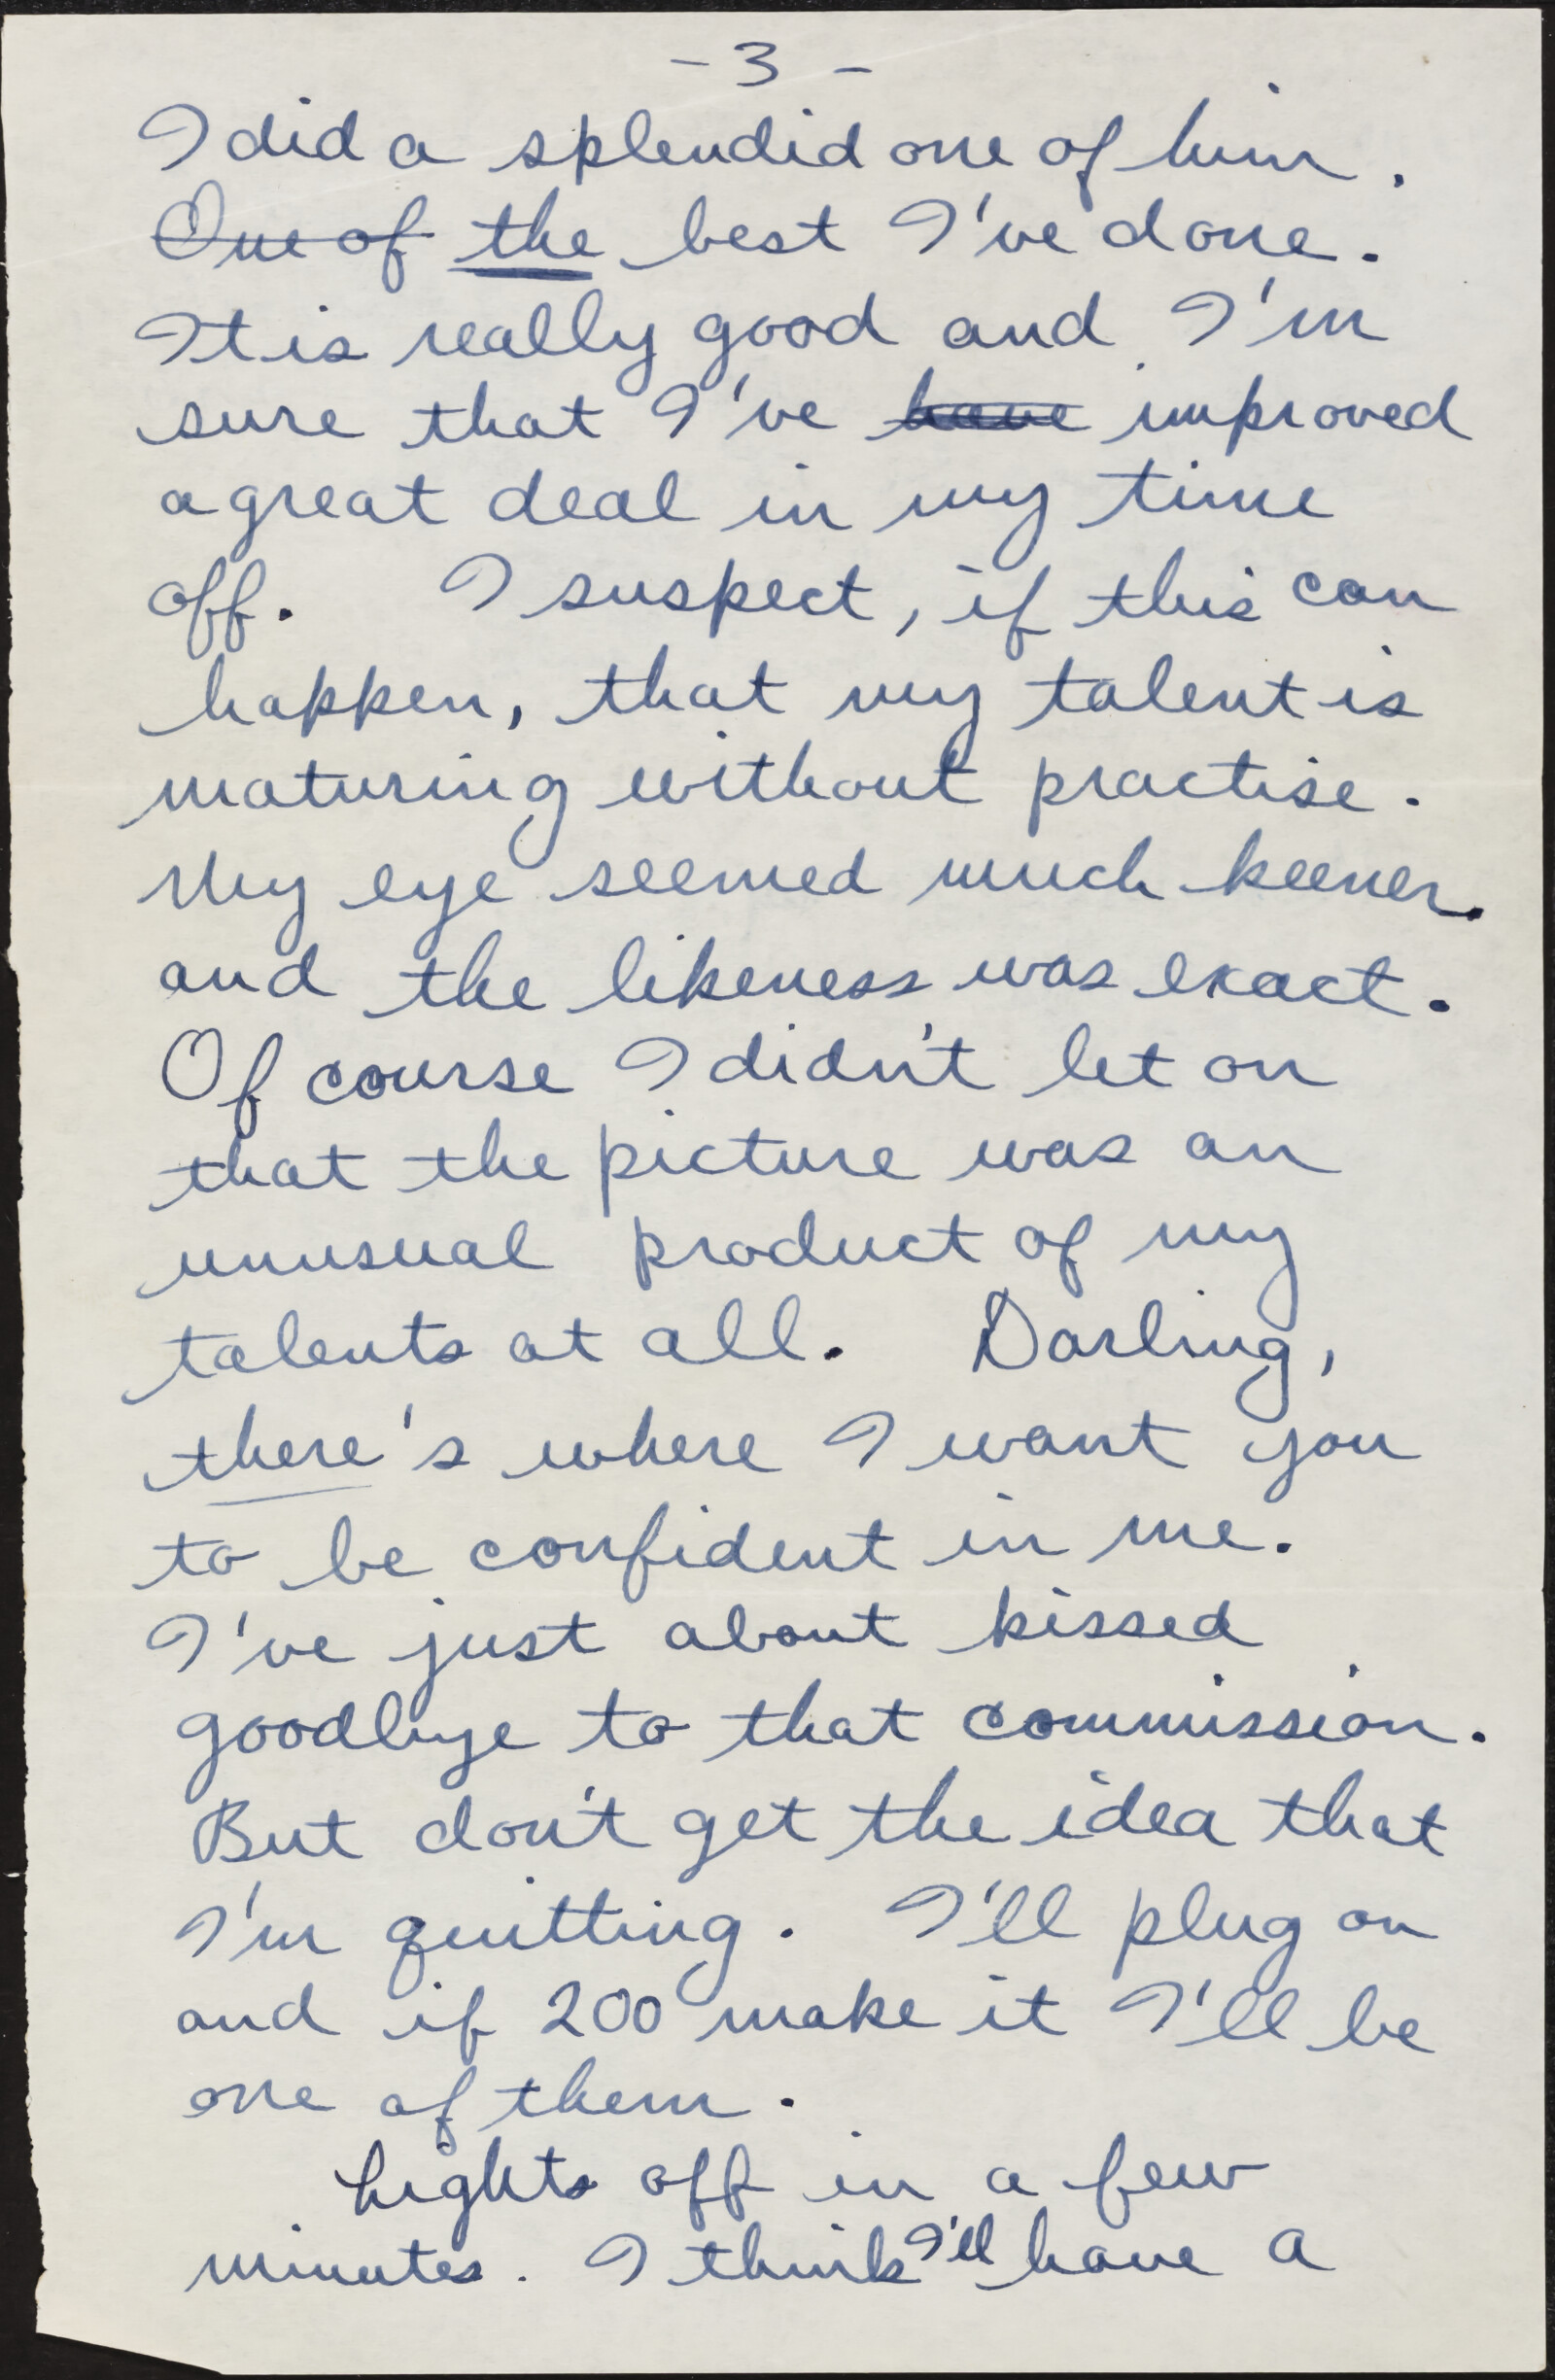 - 3 -
I did a splendid one of him.
One of the best I've done.
It is really good and I'm
sure that I've have improved
a great deal in my time
off. I suspect, if this can
happen, that my talent is
maturing without practise.
My eye seemed much keener.
and the likeness was exact.
Of course I didn't let on
that the picture was an
unusual product of my
talents at all. Darling,
there's where I want you
to be confident in me.
I've just about kissed
goodbye to that commission.
But don't get the idea that
I'm quitting. I'll plug on
and if 200 make it I'll be
one of them.
Lights off in a few
minutes. I think I'll have a